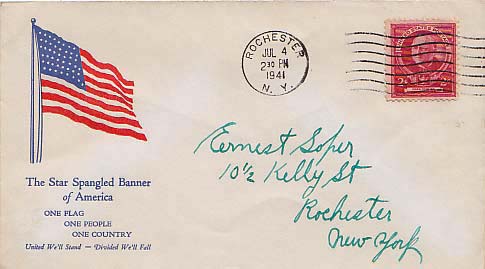 ROCHESTER
JUL 4
2 30 PM
1941
N. Y.
The Star Spangled Banner
of America
ONE FLAG
ONE PEOPLE
ONE COUNTRY
United We'll Stand — Divided We'll Fall
Ernest Soper
10 1/2 Kelly St
Rochester
New York